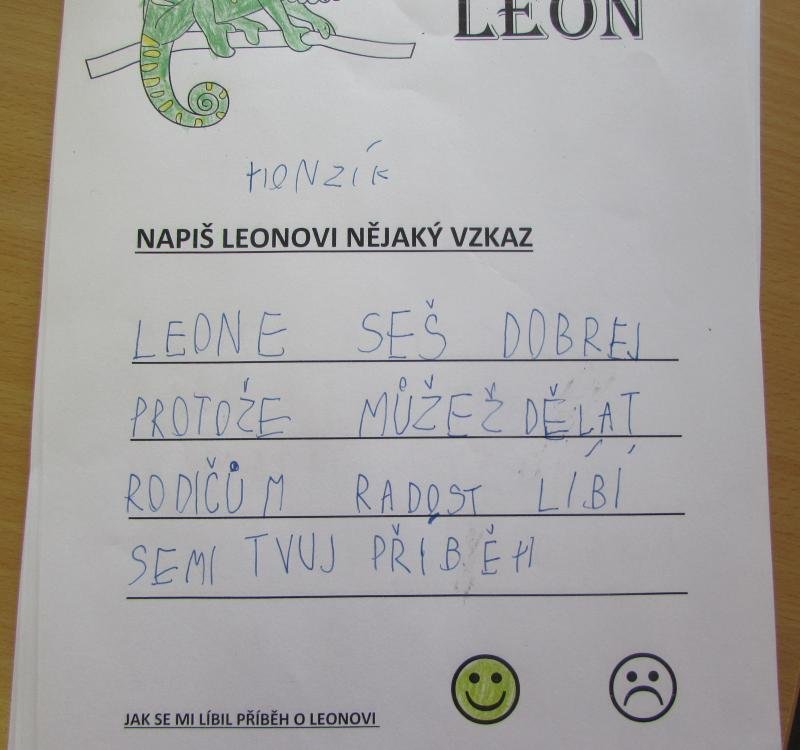 LEON
HONZÍK
NAPIŠ LEONOVI NĚJAKÝ VZKAZ
LEONE SEŠ DOBREJ
PROTOŽE MŮŽEŽ DĚLAT
RODIČŮM RADOST LÍBÍ
SEMI TVUJ PŘÍBĚH
JAK SE MI LÍBIL PŘÍBĚH O LEONOVI